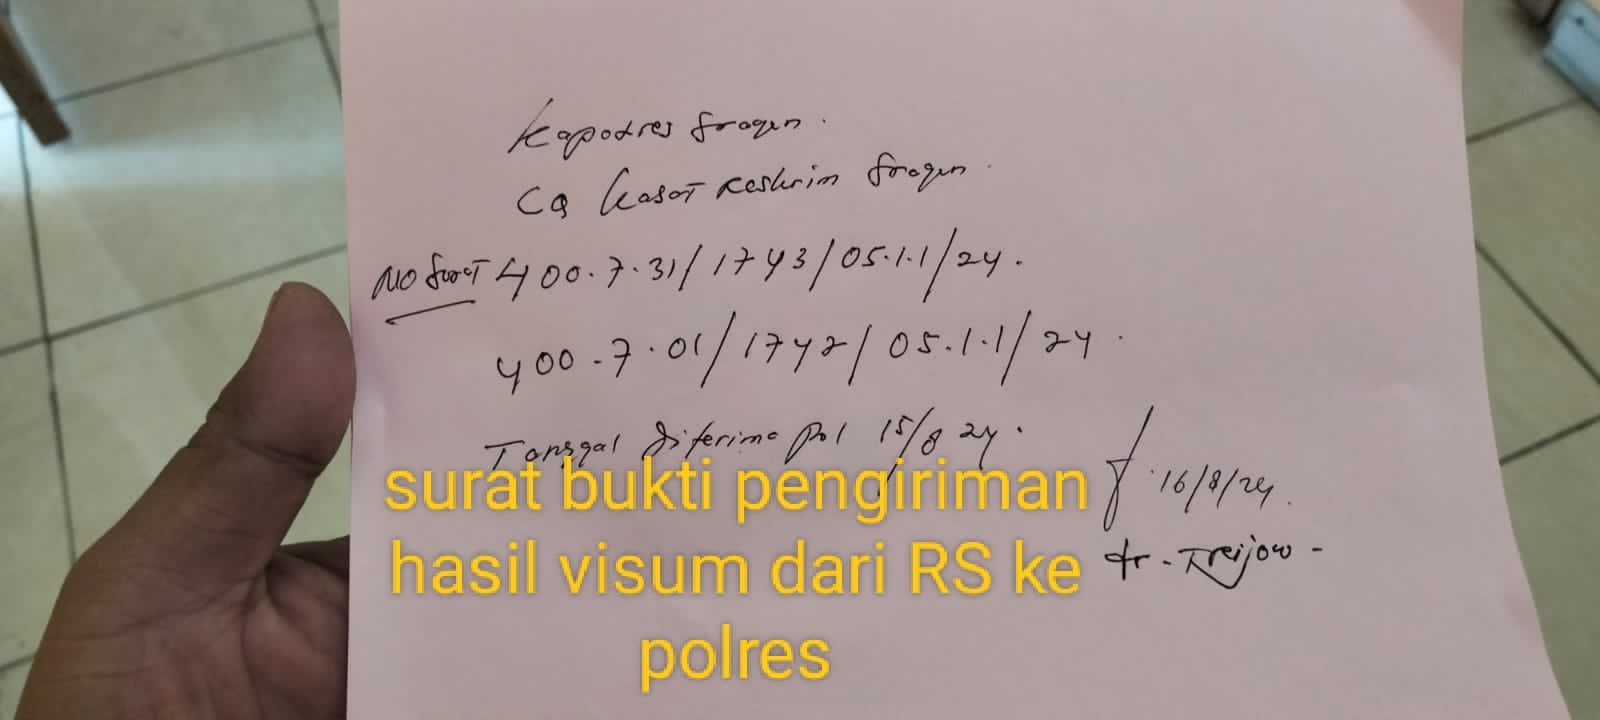 Kapolres Sragen.
CQ Kasat Reskrim Sragen.
No Surat 400.7.31/1743/05.1.1/24.
400.7.01/1742/05.1.1/24.
Tanggal diterima pol 15/8 24.
16/8/24.
dr.
surat bukti pengiriman
hasil visum dari RS ke
polres